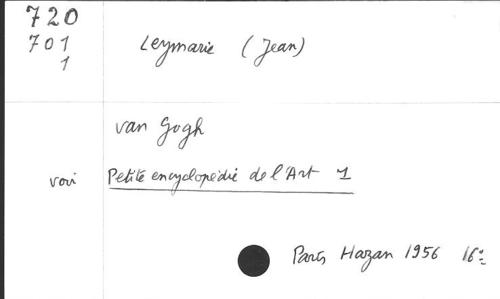 720
701
1
Leymarie (Jean)
van Gogh
voir Petite encyclopédie de l'Art 1
Paris, Hazan 1956 16º